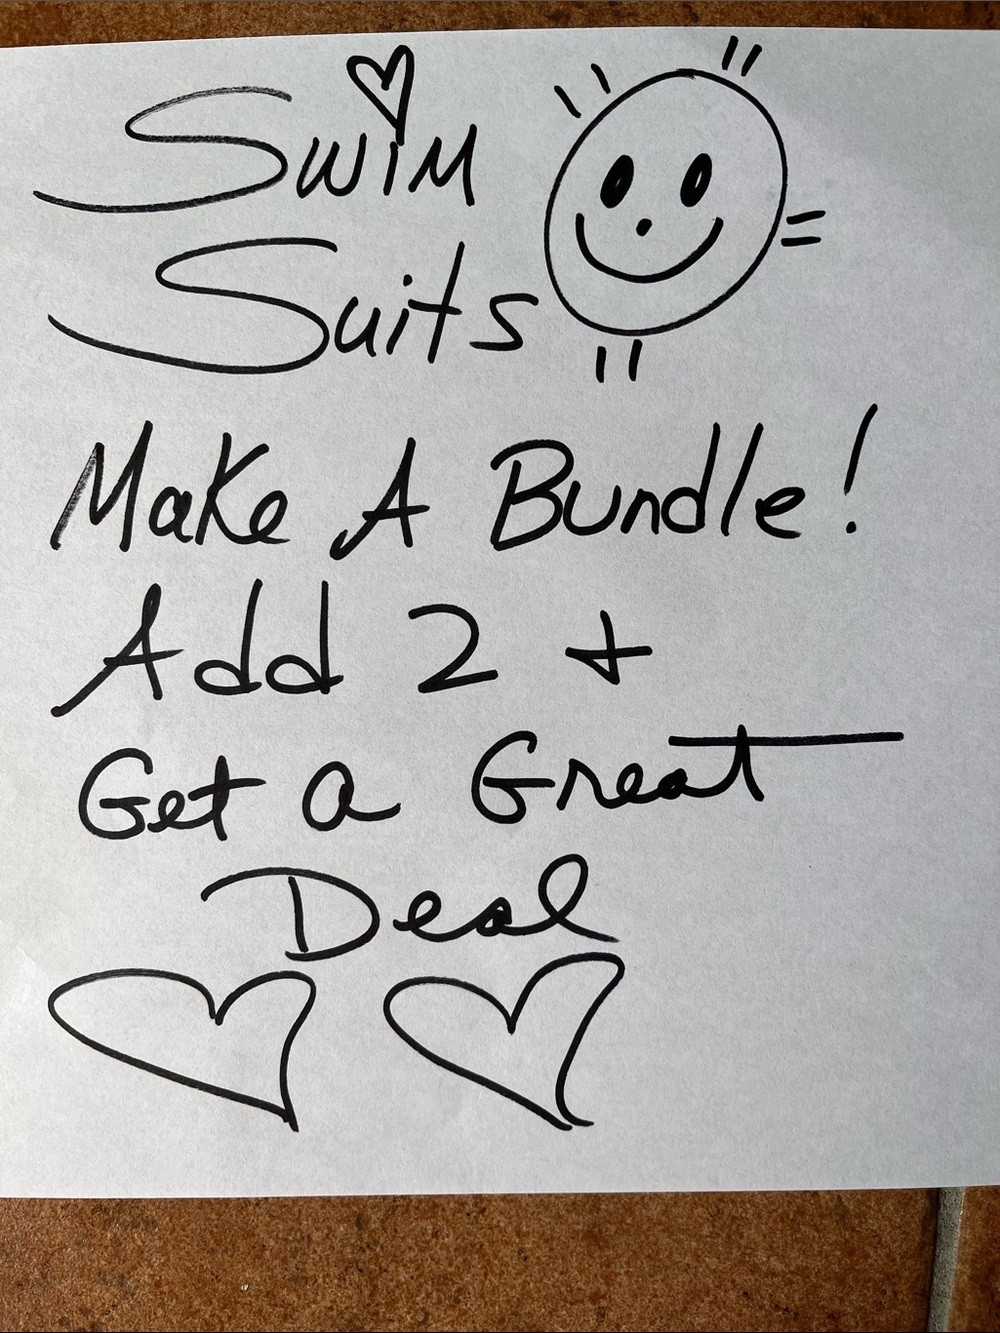 Swim
Suits
Make A Bundle!
Add 2 +
Get a Great
Deal